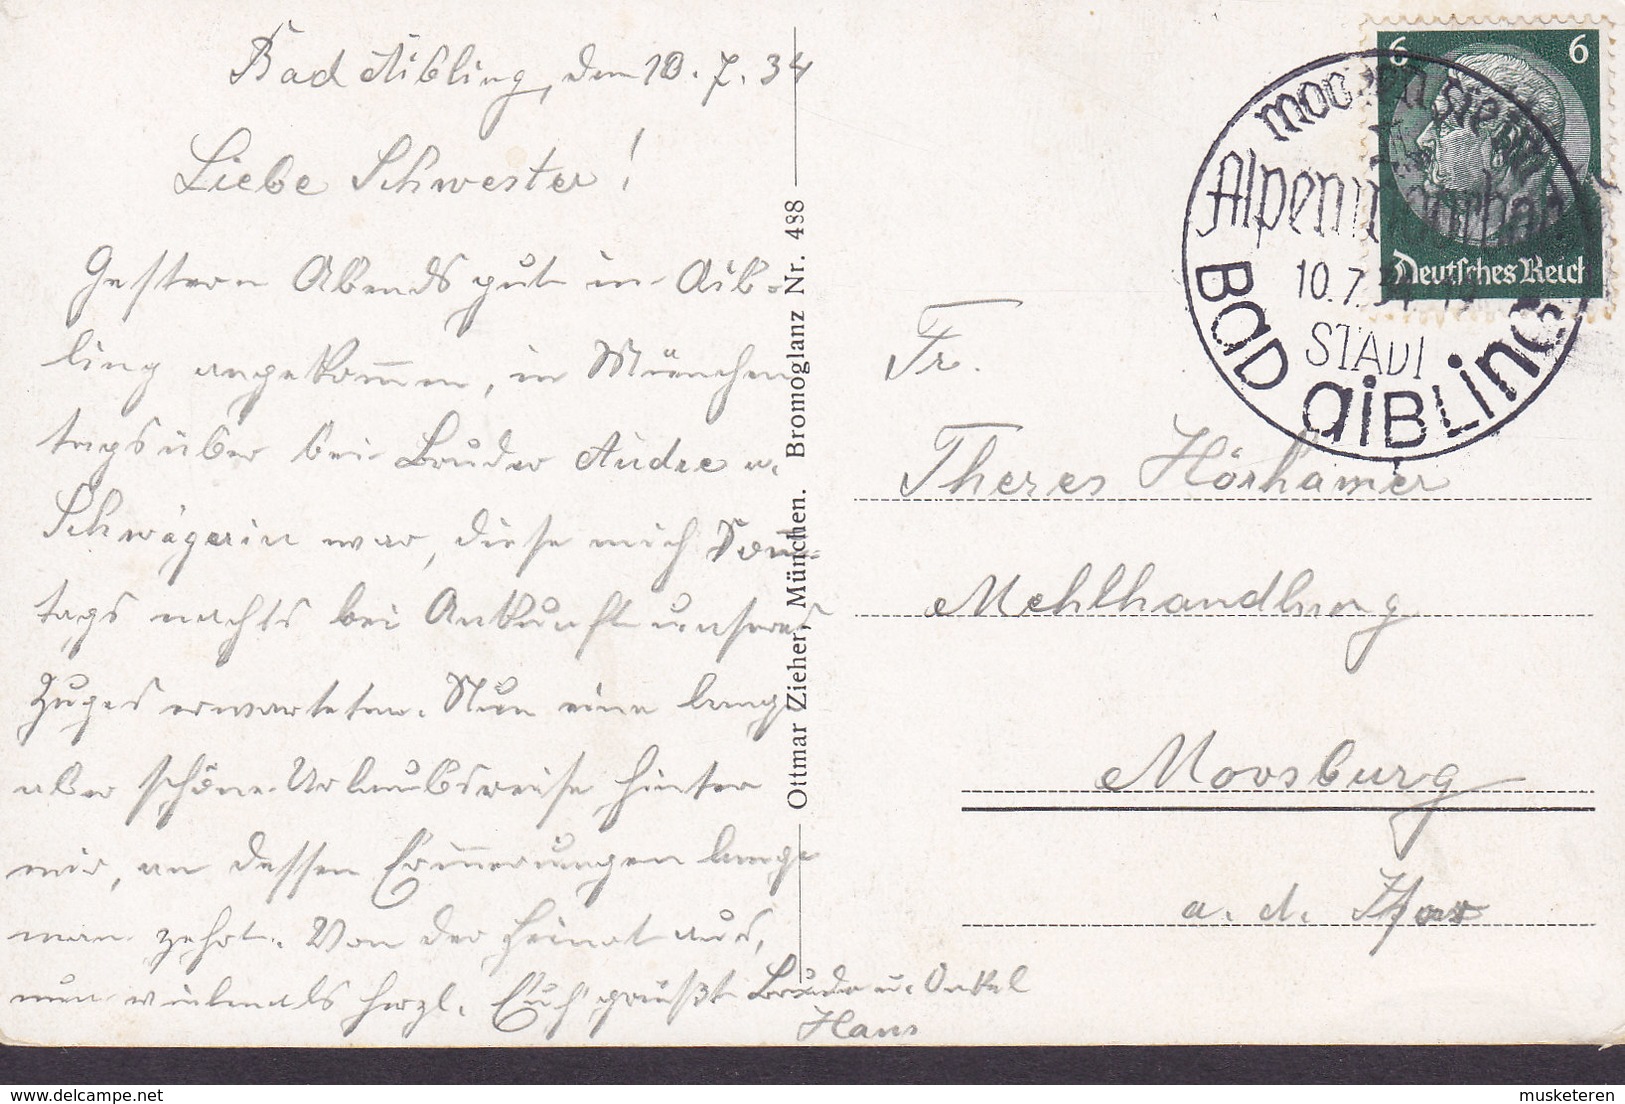 Bad Aibling, den 10.7.34
Liebe Schwester!
Gestern Abends gut in Aib-
ling angekommen, in München
tagsüber bei Bruder Andre u.
Schwägerin war, diese mich Sonn-
tags nachts bei Ankunft unseres
Zuges erwarteten. Nun eine lange
aber schöne Urlaubsreise hinter
mir, an dessen Erinnerungen lange
man zehrt. Von der Heimat aus,
nun vielmals herzl. Euch grüßt Bruder u. Onkel
Hans
Ottmar Zieher, München. Bromoglanz Nr. 488
6 6
Deutsches Reich
Alpenmoorbad
10.7.34
STADT
BAD AIBLING
Fr.
Theres Hörhamer
Mehlhandlung
Moosburg
a. d. Isar
musketeren @ delcampe.net